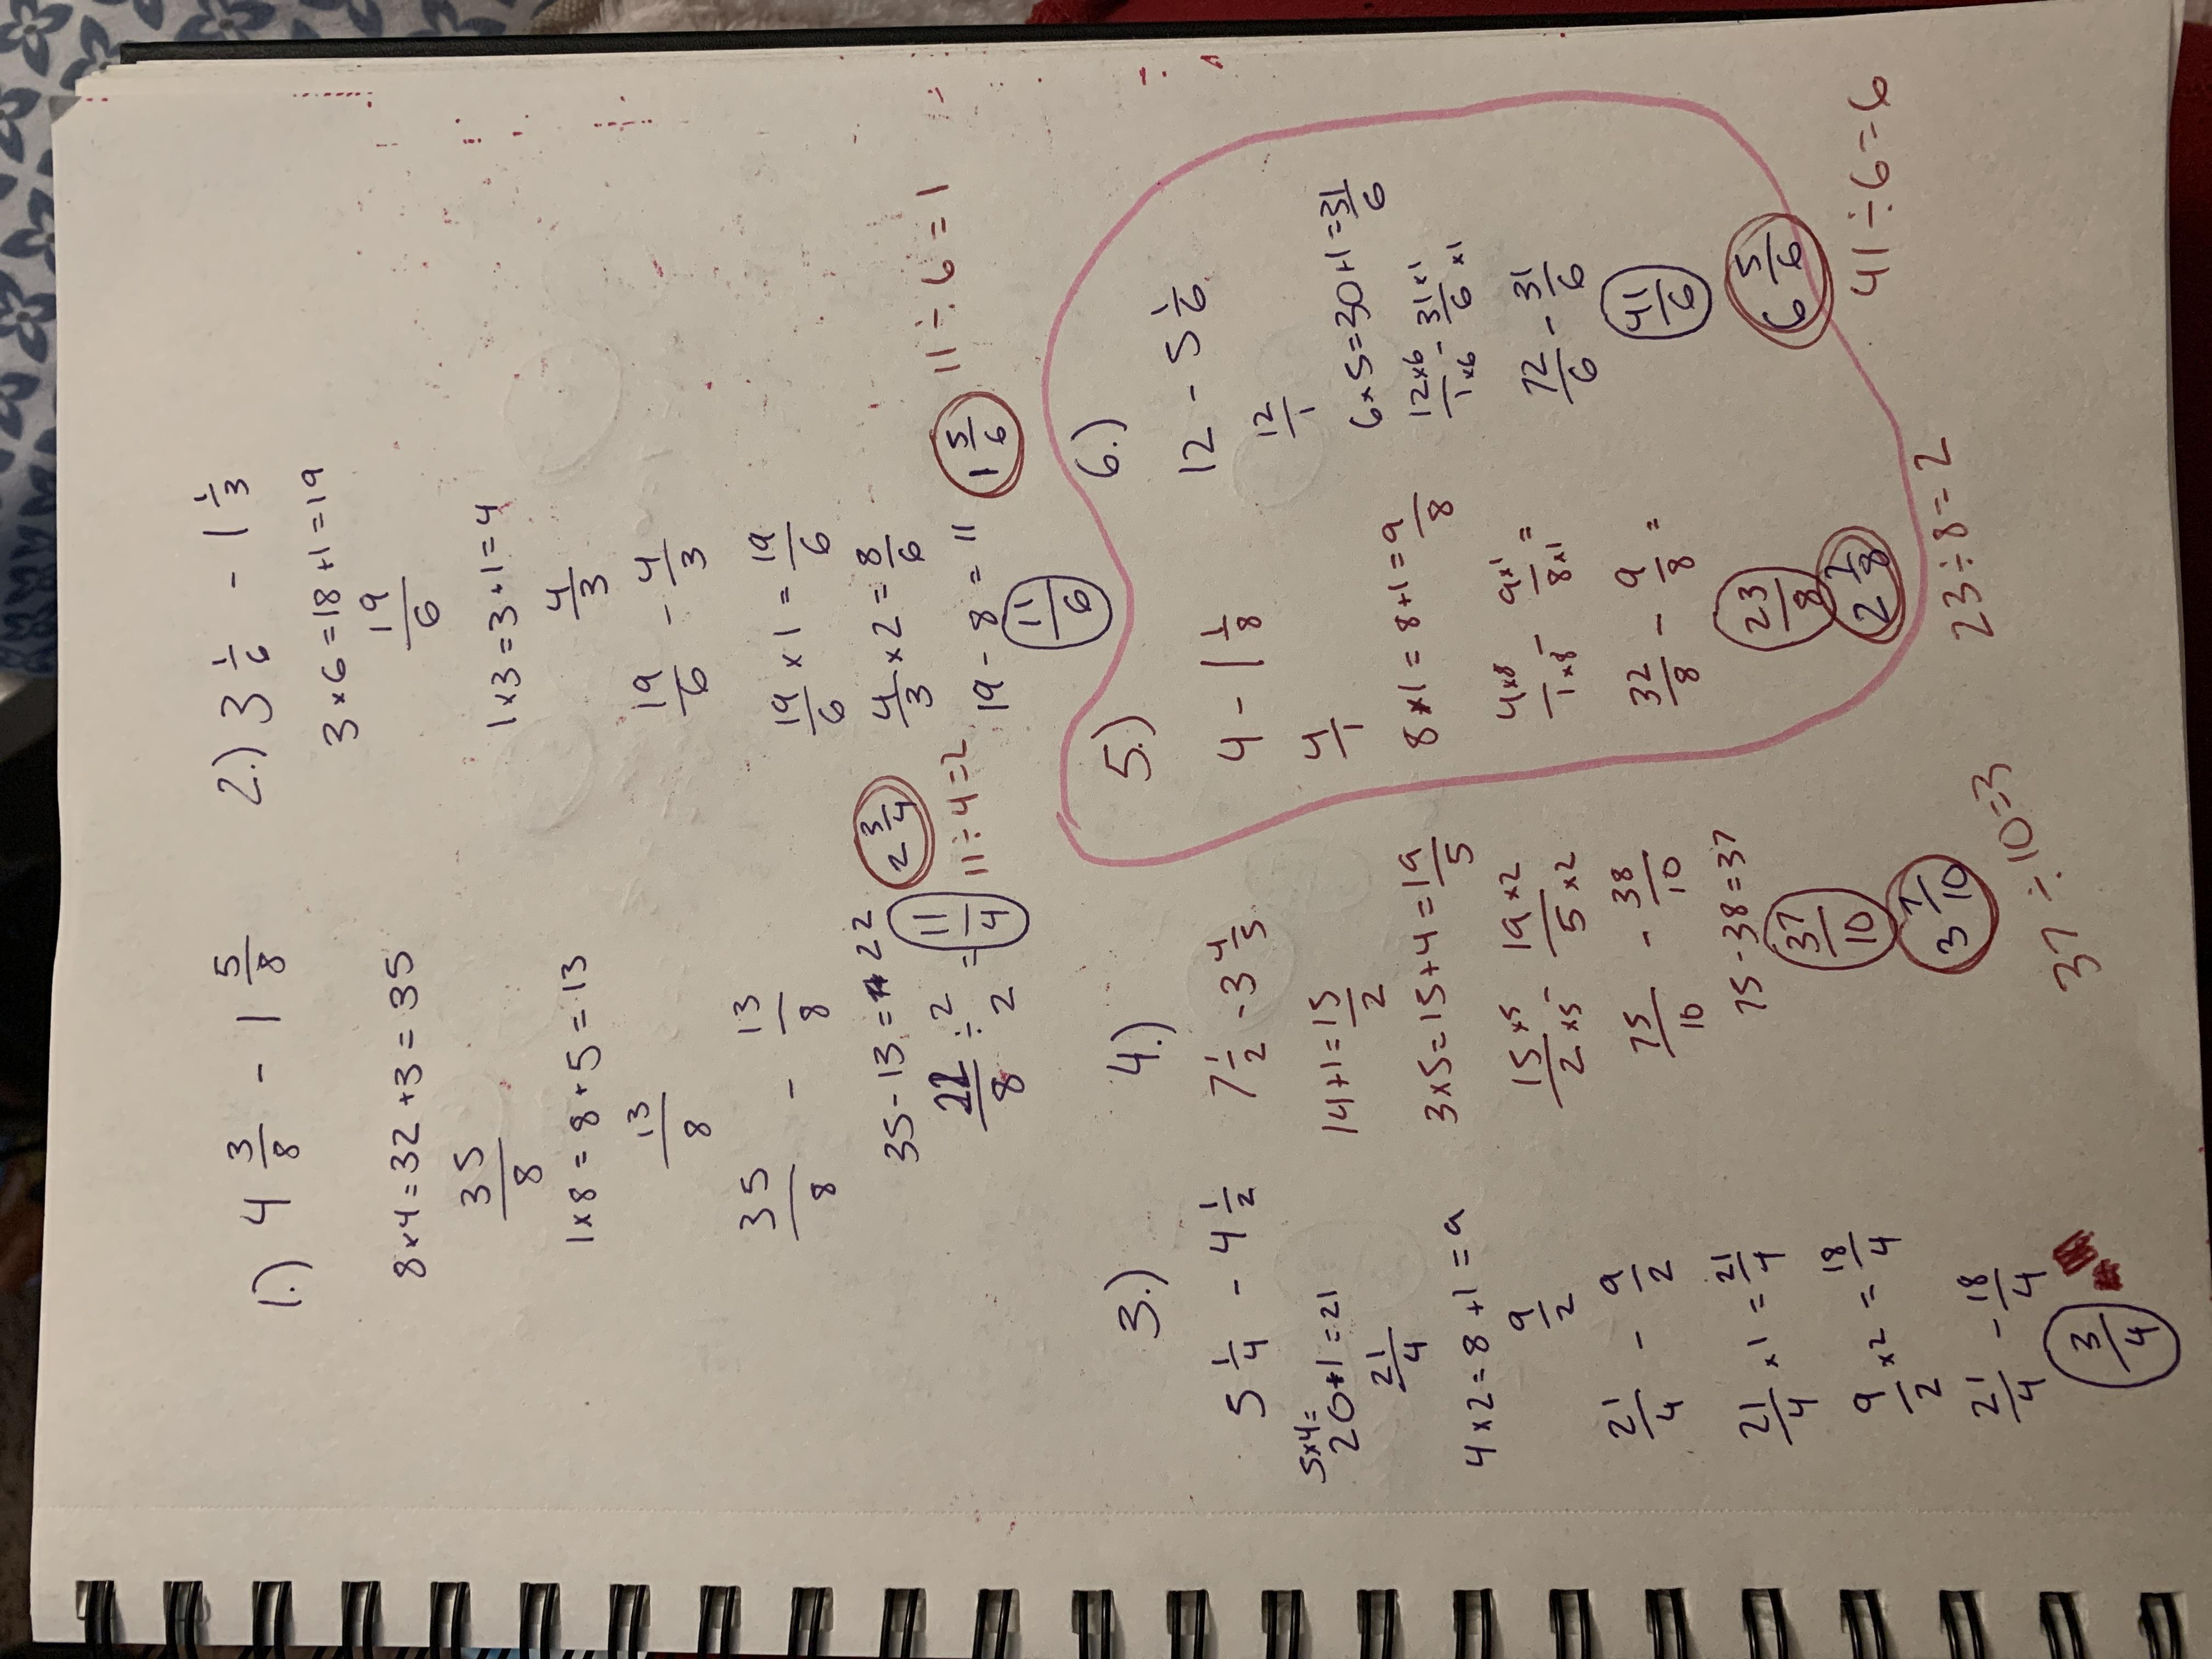 1.) 4 3/8 - 1 5/8
8x4=32+3=35
35/8
1x8=8+5=13
13/8
35/8 - 13/8
35-13=22
22/8 ÷ 2/2 = 11/4
2 3/4
11÷4=2
2.) 3 1/6 - 1 1/3
3x6=18+1=19
19/6
1x3=3+1=4
4/3
19/6 - 4/3
19/6 x1 = 19/6
4/3 x2 = 8/6
19-8=11
11/6
1 5/6
11÷6=1
3.)
5 1/4 - 4 1/2
5x4=
20+1=21
21/4
4x2=8+1=9
9/2
21/4 - 9/2
21/4 x1 = 21/4
9/2 x2 = 18/4
21/4 - 18/4
3/4
4.)
7 1/2 - 3 4/5
14+1=15/2
3x5=15+4=19/5
15x5/2x5 - 19x2/5x2
75/10 - 38/10
75-38=37
37/10
3 7/10
37÷10=3
5.)
4 - 1 1/8
4/1
8x1=8+1=9/8
4x8/1x8 - 9x1/8x1 =
32/8 - 9/8 =
23/8
2 7/8
23÷8=2
6.)
12 - 5 1/6
12/1
6x5=30+1=31/6
12x6/1x6 - 31x1/6x1
72/6 - 31/6
41/6
6 5/6
41÷6=6